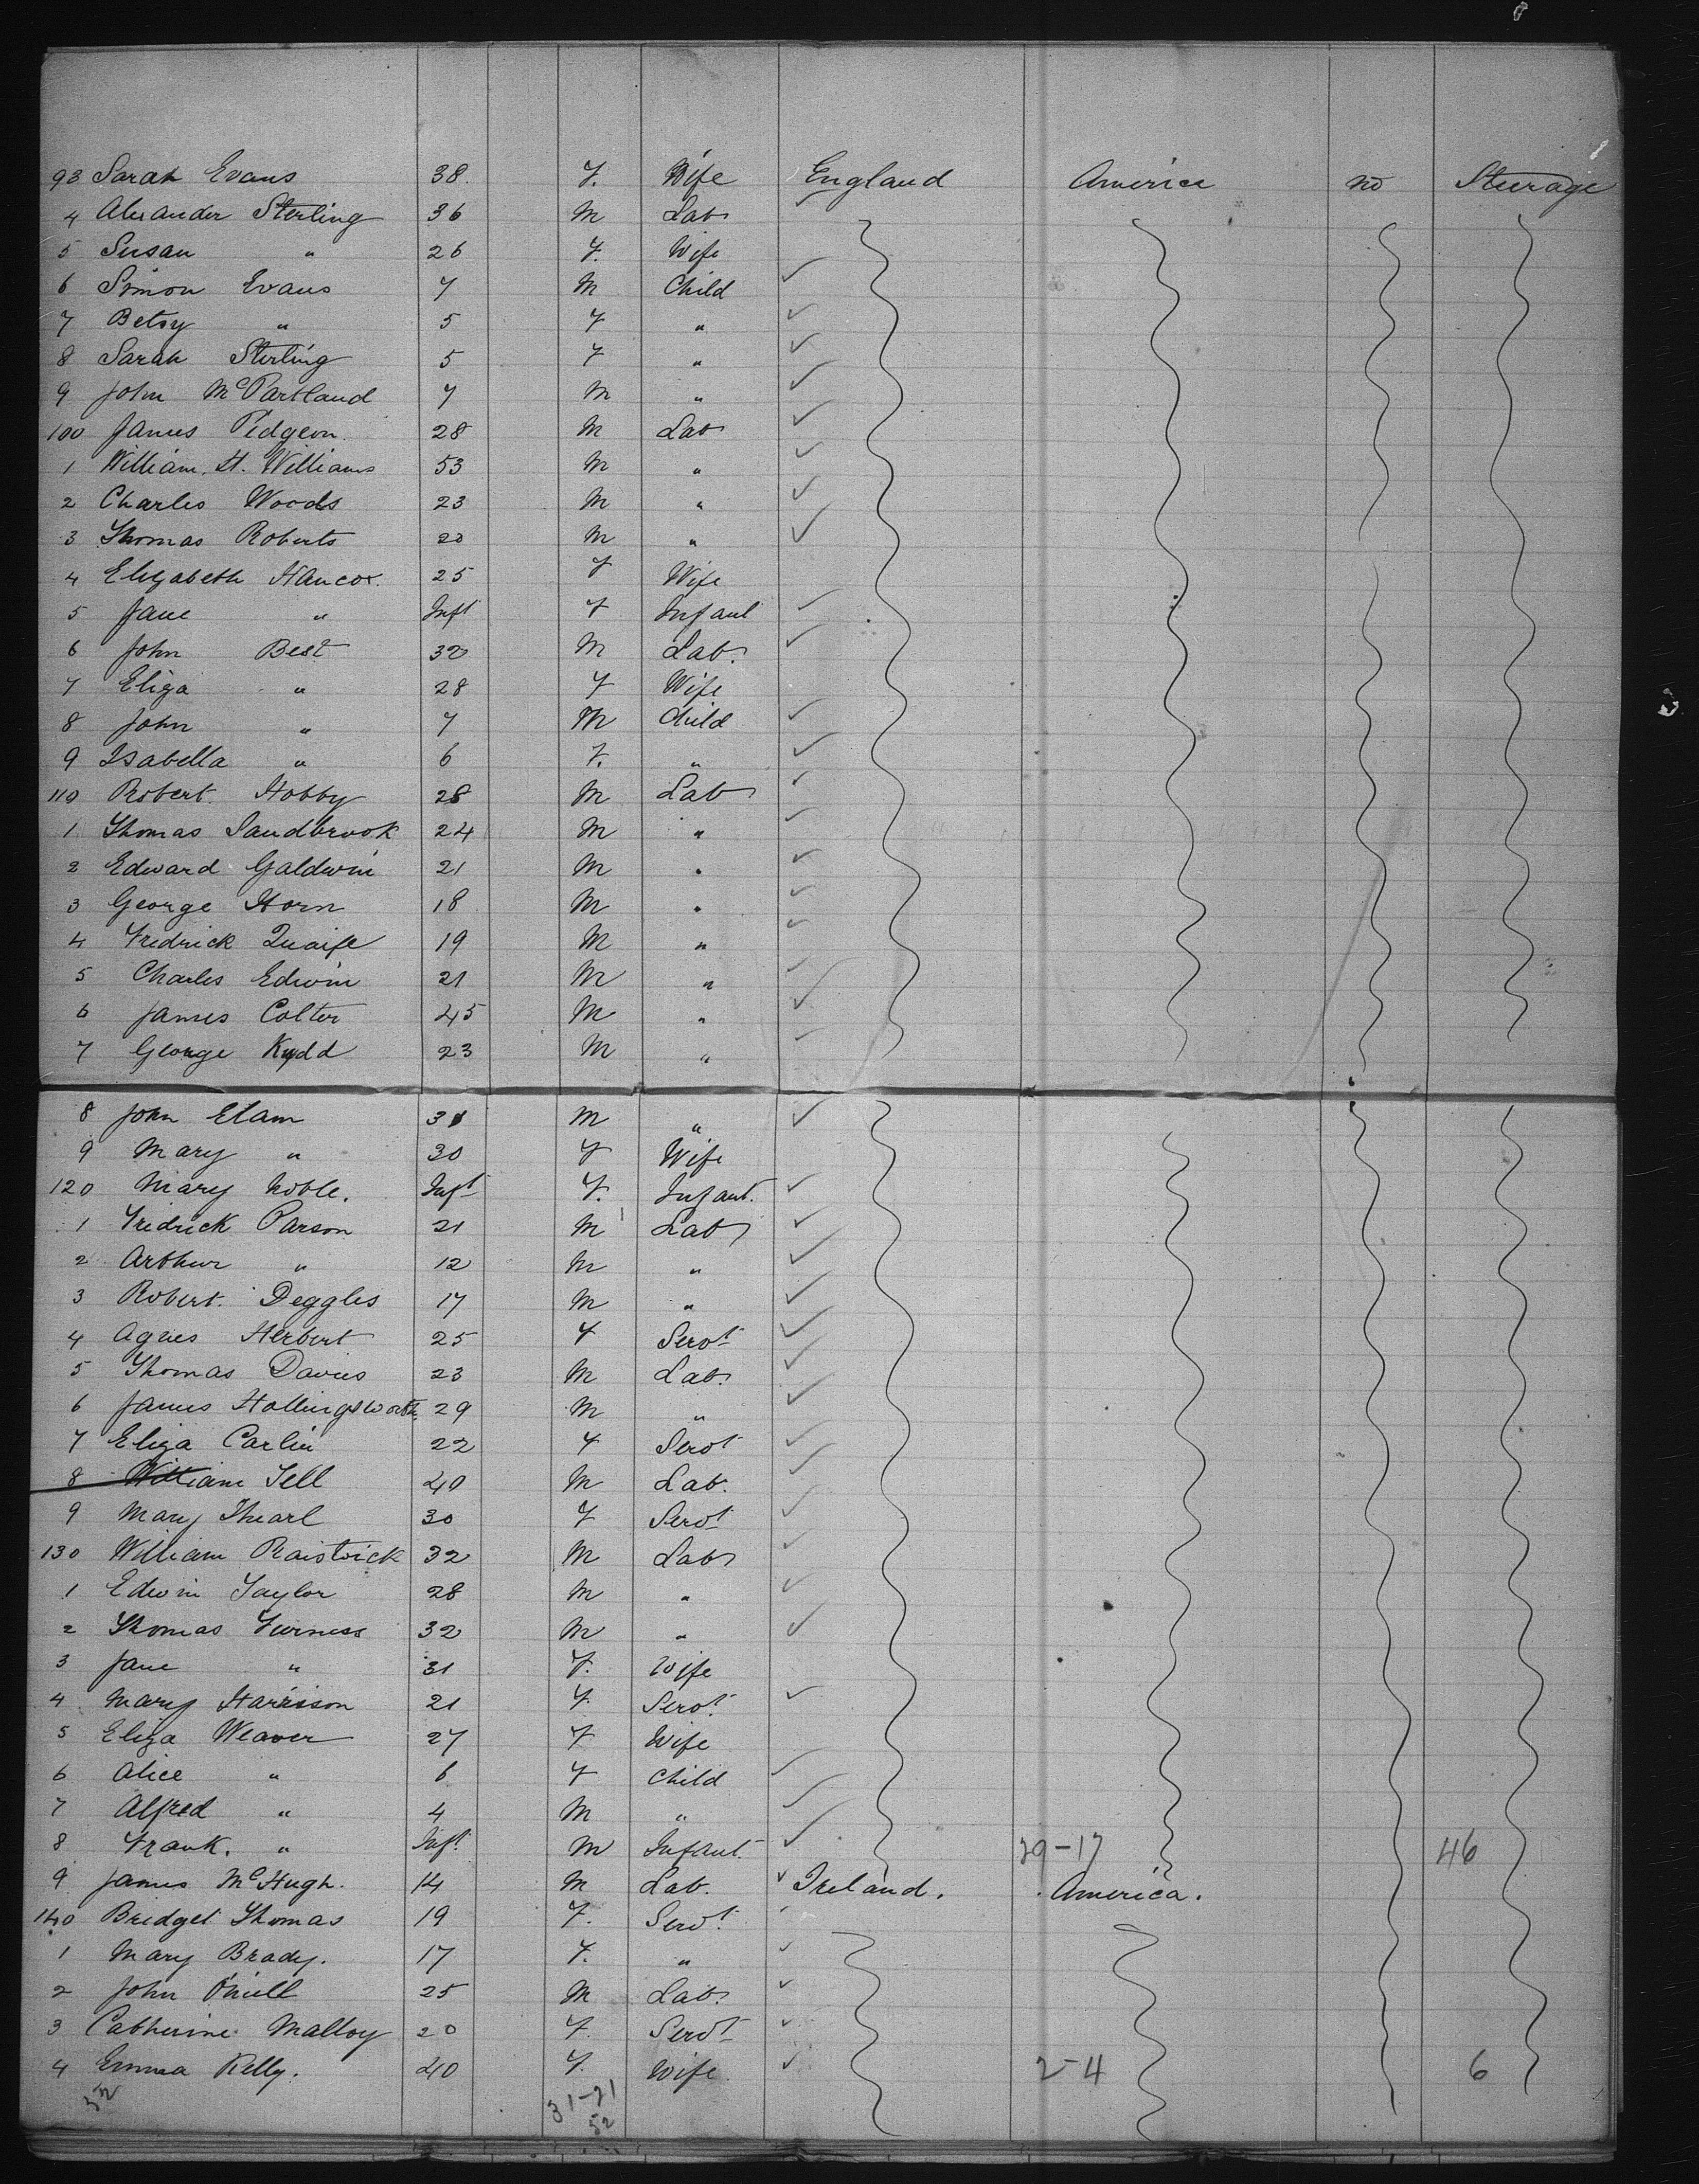 93 Sarah Evans 38. F. Wife England America no Steerage
4 Alexander Sterling 36 M Lab
5 Susan " 26 F. Wife
6 Simon Evans 7 M Child
7 Betsy " 5 F "
8 Sarah Sterling 5 F "
9 John McPartland 7 M "
100 James Pidgeon 28 M Lab
1 William. H. Williams 53 M "
2 Charles Woods 23 M "
3 Thomas Roberts 20 M "
4 Elizabeth Hancox. 25 F Wife
5 Jane " Inft F Infant
6 John Best 32 M Lab.
7 Eliza " 28 F Wife
8 John " 7 M Child
9 Isabella " 6 F. "
110 Robert Hobby 28 M Lab
1 Thomas Sandbrook 24 M "
2 Edward Galdwin 21 M "
3 George Horn 18 M "
4 Fredrick Quaife 19 M "
5 Charles Edwin 21 M "
6 James Colter 45 M "
7 George Kydd 23 M "
8 John Elam 31 M "
9 Mary " 30 F Wife
120 Mary Noble. Inft F. Infant.
1 Fredrick Parson 21 M Lab
2 Arthur " 12 M "
3 Robert. Deggles 17 M "
4 Agnes Herbert 25 F Servt
5 Thomas Davies 23 M Lab.
6 James Hollingsworth 29 M "
7 Eliza Carlin 22 F Servt
8 William Tell 40 M Lab.
9 Mary Thearl 30 F Servt
130 William Raistrick 32 M Lab
1 Edwin Taylor 28 M "
2 Thomas Furness 32 M "
3 Jane " 31 F. Wife
4 Mary Harrison 21 F Servt
5 Eliza Weaver 27 F Wife
6 Alice " 6 F Child
7 Alfred " 4 M "
8 Frank. " Inft M Infant. 29-17 46
9 James McHugh. 14 M Lab. Ireland. America.
140 Bridget Thomas 19 F. Servt
1 Mary Brady. 17 F. "
2 John O'neill 25 M Lab.
3 Catherine Malloy 20 F. Servt
4 Emma Kelly. 40 F. Wife 2-4 6
52 31-21
52